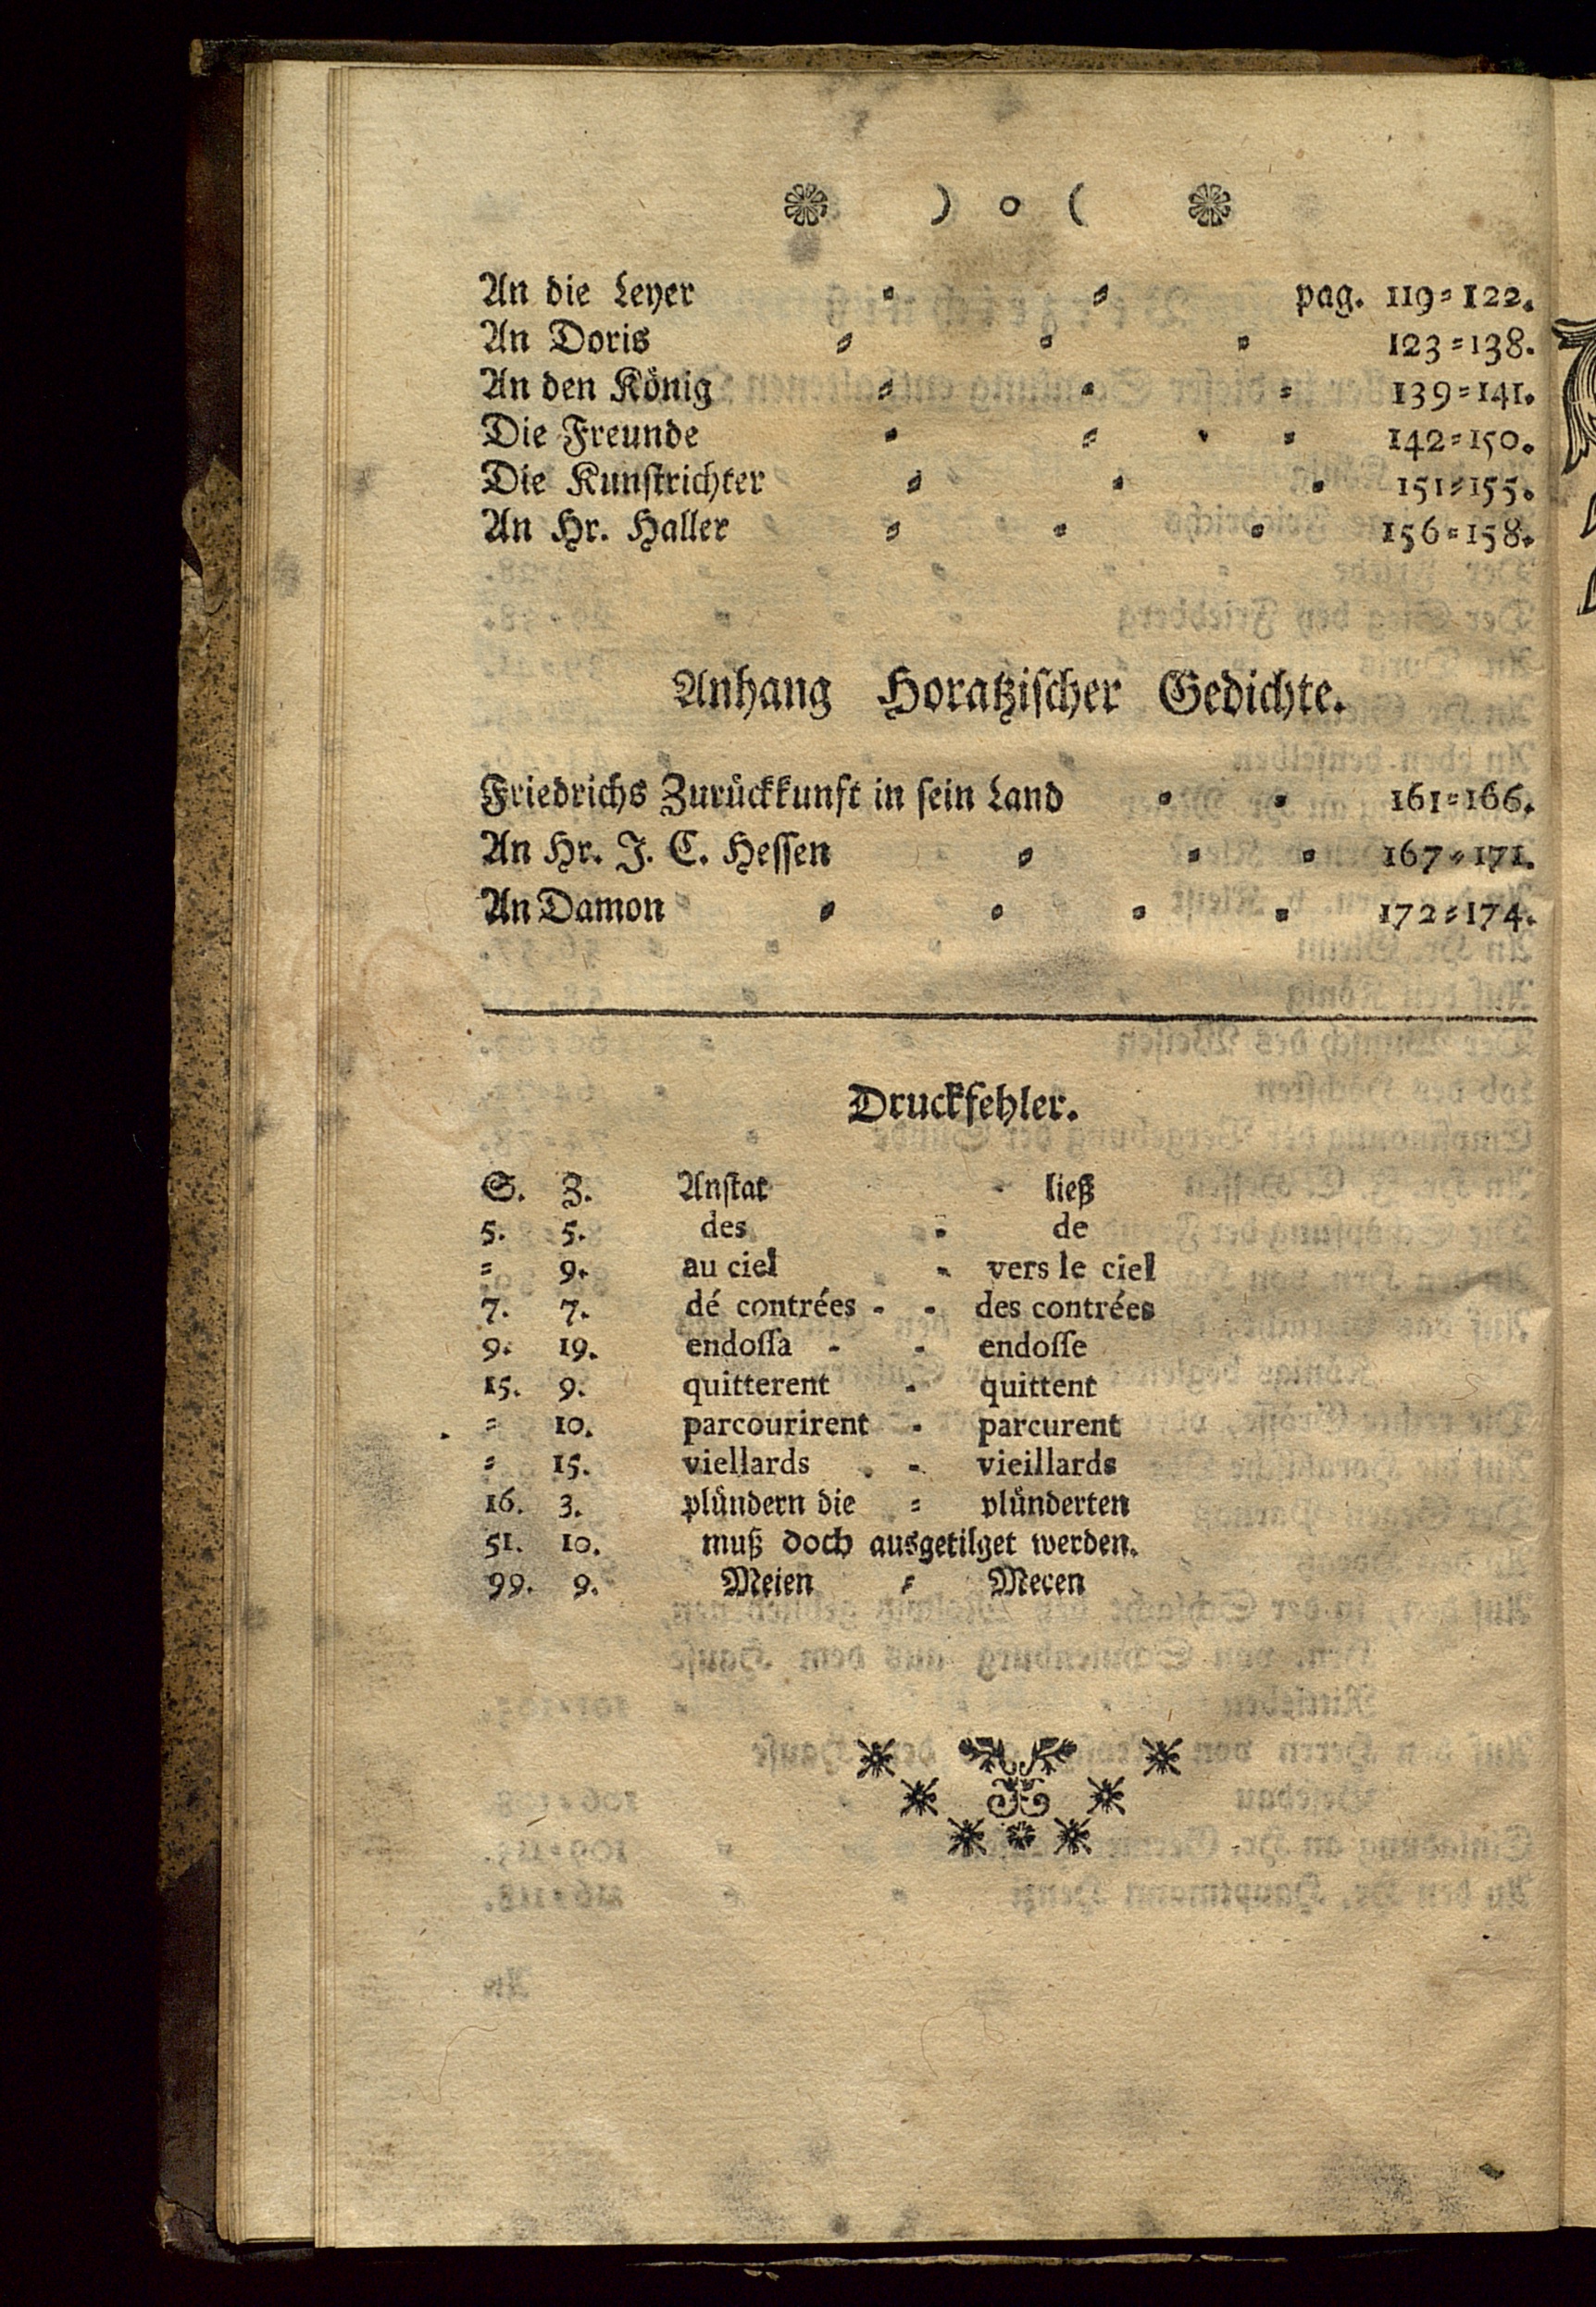 ) o (
An die Leyer = = pag. 119=122.
An Doris = = = 123=138.
An den König = = = 139=141.
Die Freunde = = = 142=150.
Die Kunstrichter = = = 151=155.
An Hr. Haller = = = 156=158.
Anhang Horatzischer Gedichte.
Friedrichs Zurückkunft in sein Land = = 161=166.
An Hr. J. C. Hessen = = = 167=171.
An Damon = = = = 172=174.
Druckfehler.
S. Z. Anstat - ließ
5. 5. des = de
= 9. au ciel - vers le ciel
7. 7. dé contrées - - des contrées
9. 19. endossa - - endosse
15. 9. quitterent - quittent
= 10. parcourirent - parcurent
= 15. viellards - - vieillards
16. 3. plündern die = plünderten
51. 10. muß doch ausgetilget werden.
99. 9. Meien = Mecen